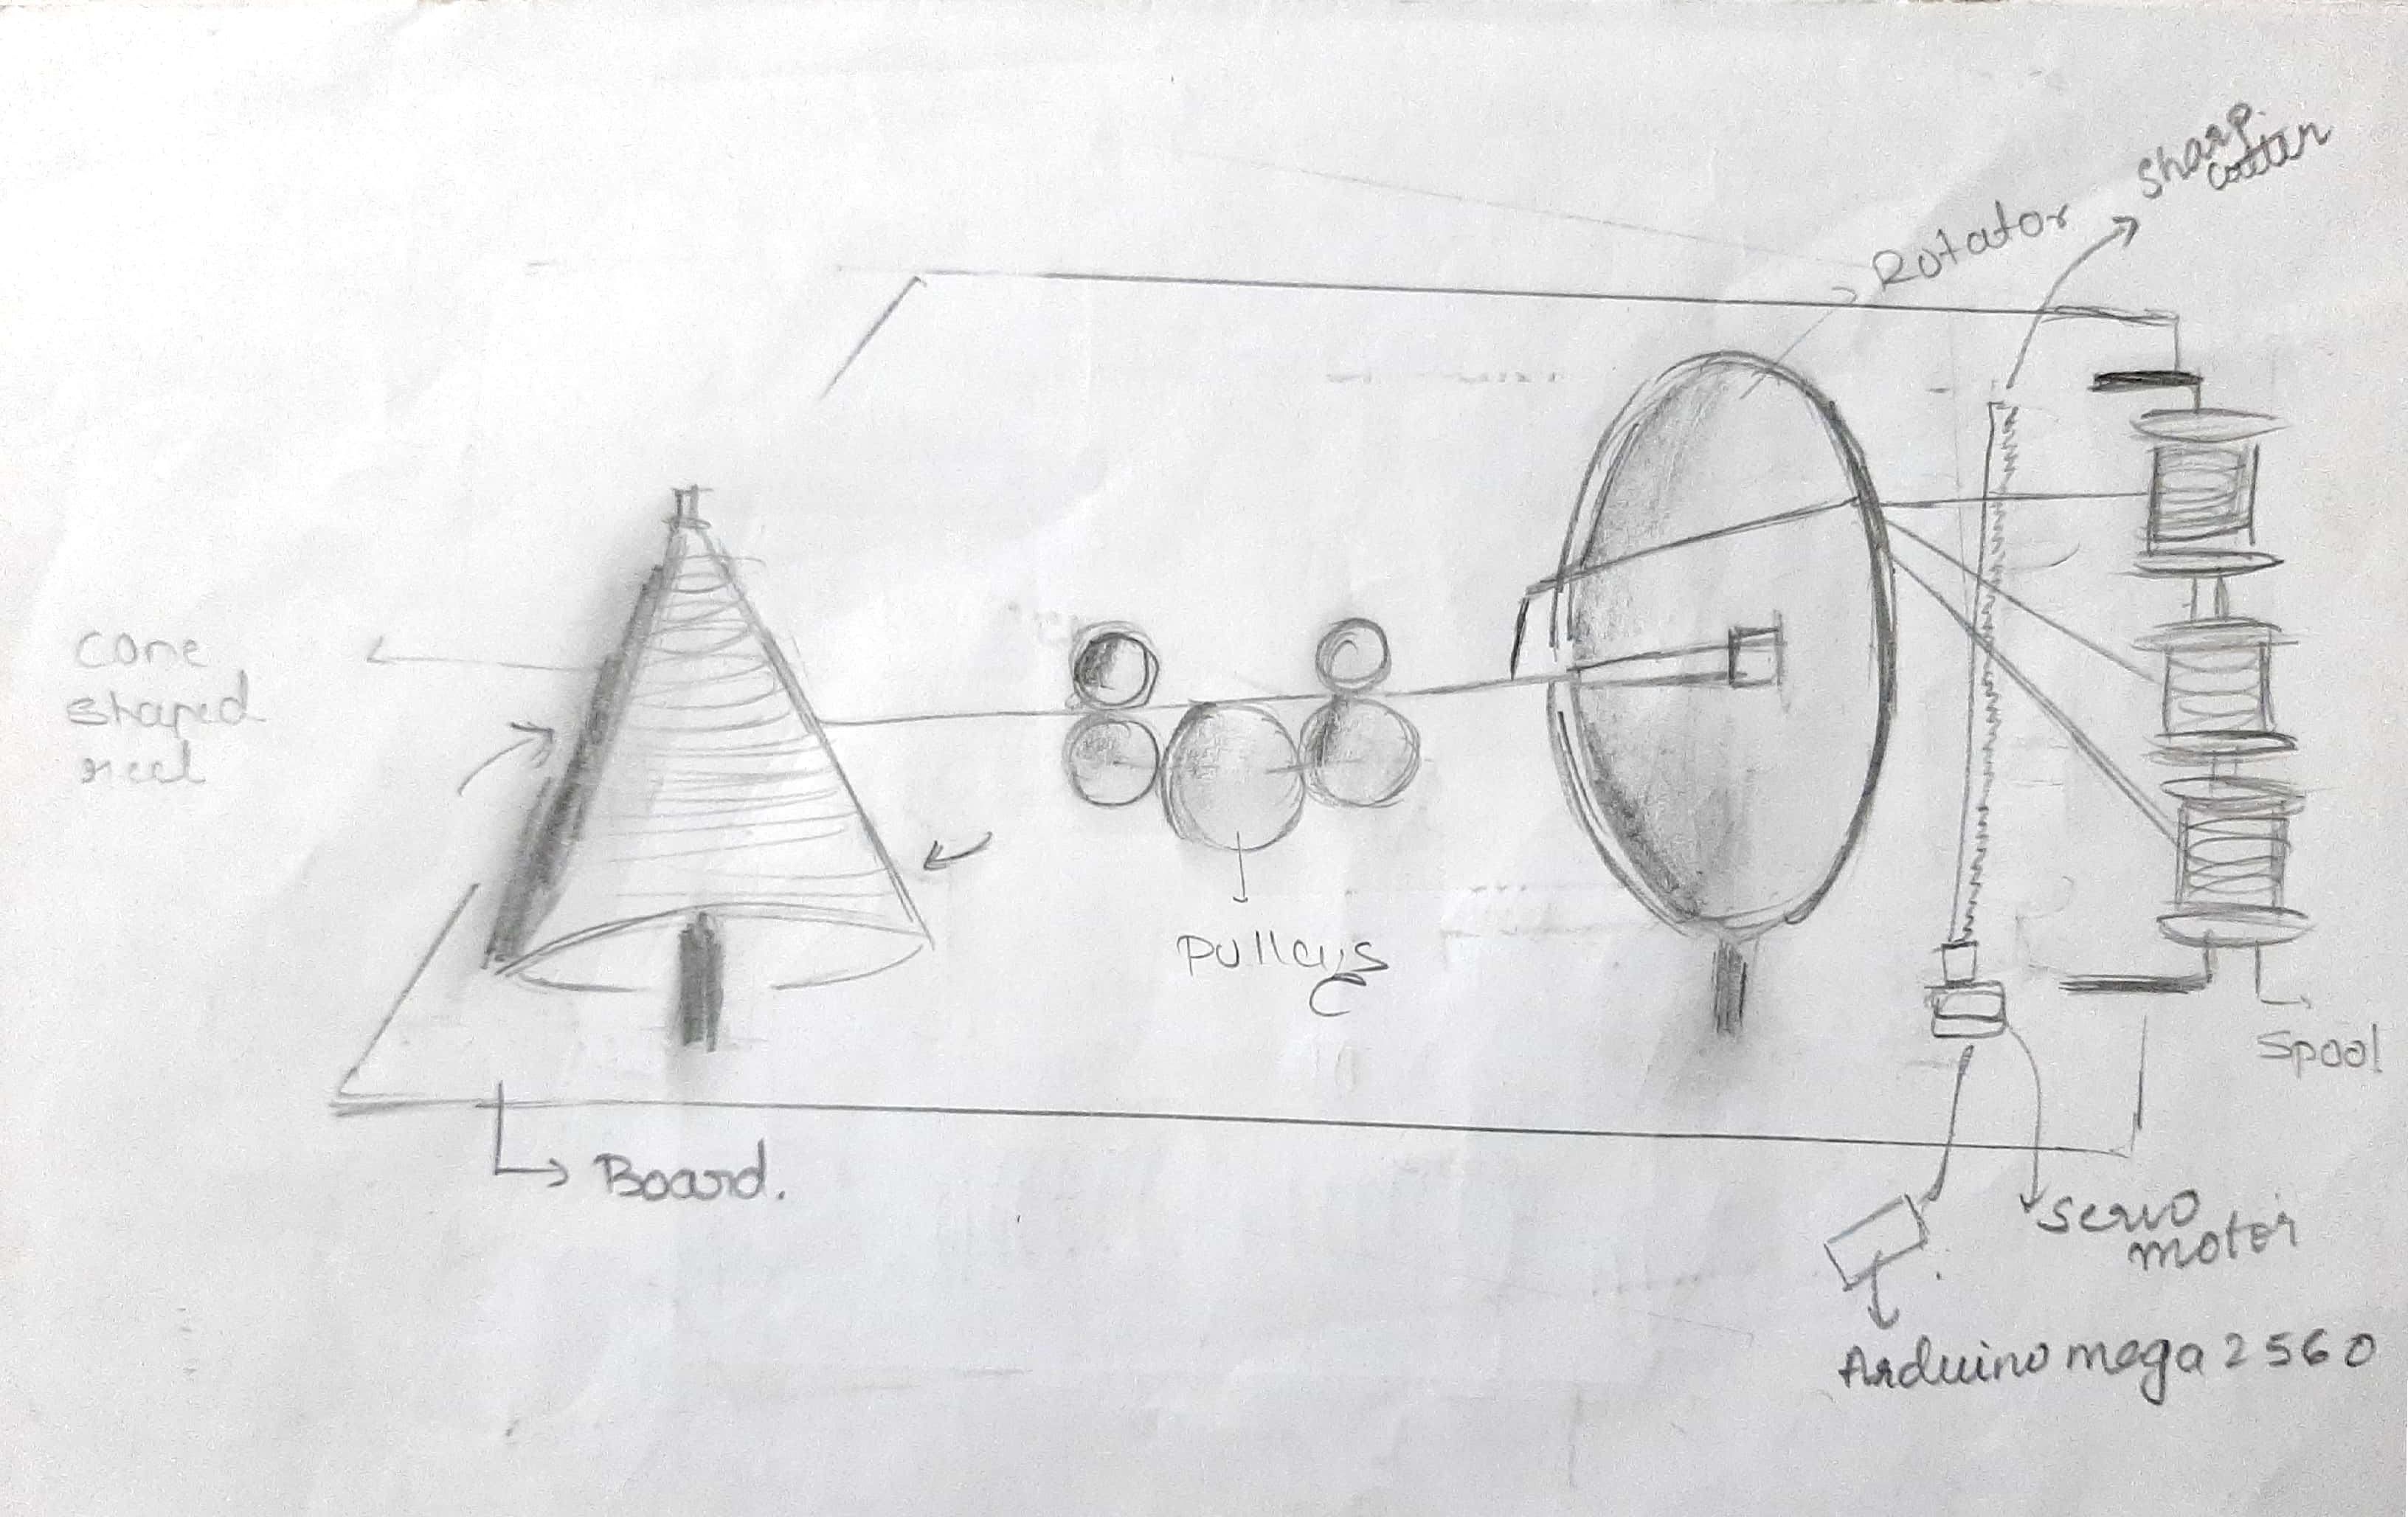 Sharp
cutter
Rotator
cone
shaped
reel
Pulleys
Spool
Board.
Servo
motor
Arduino mega 2560